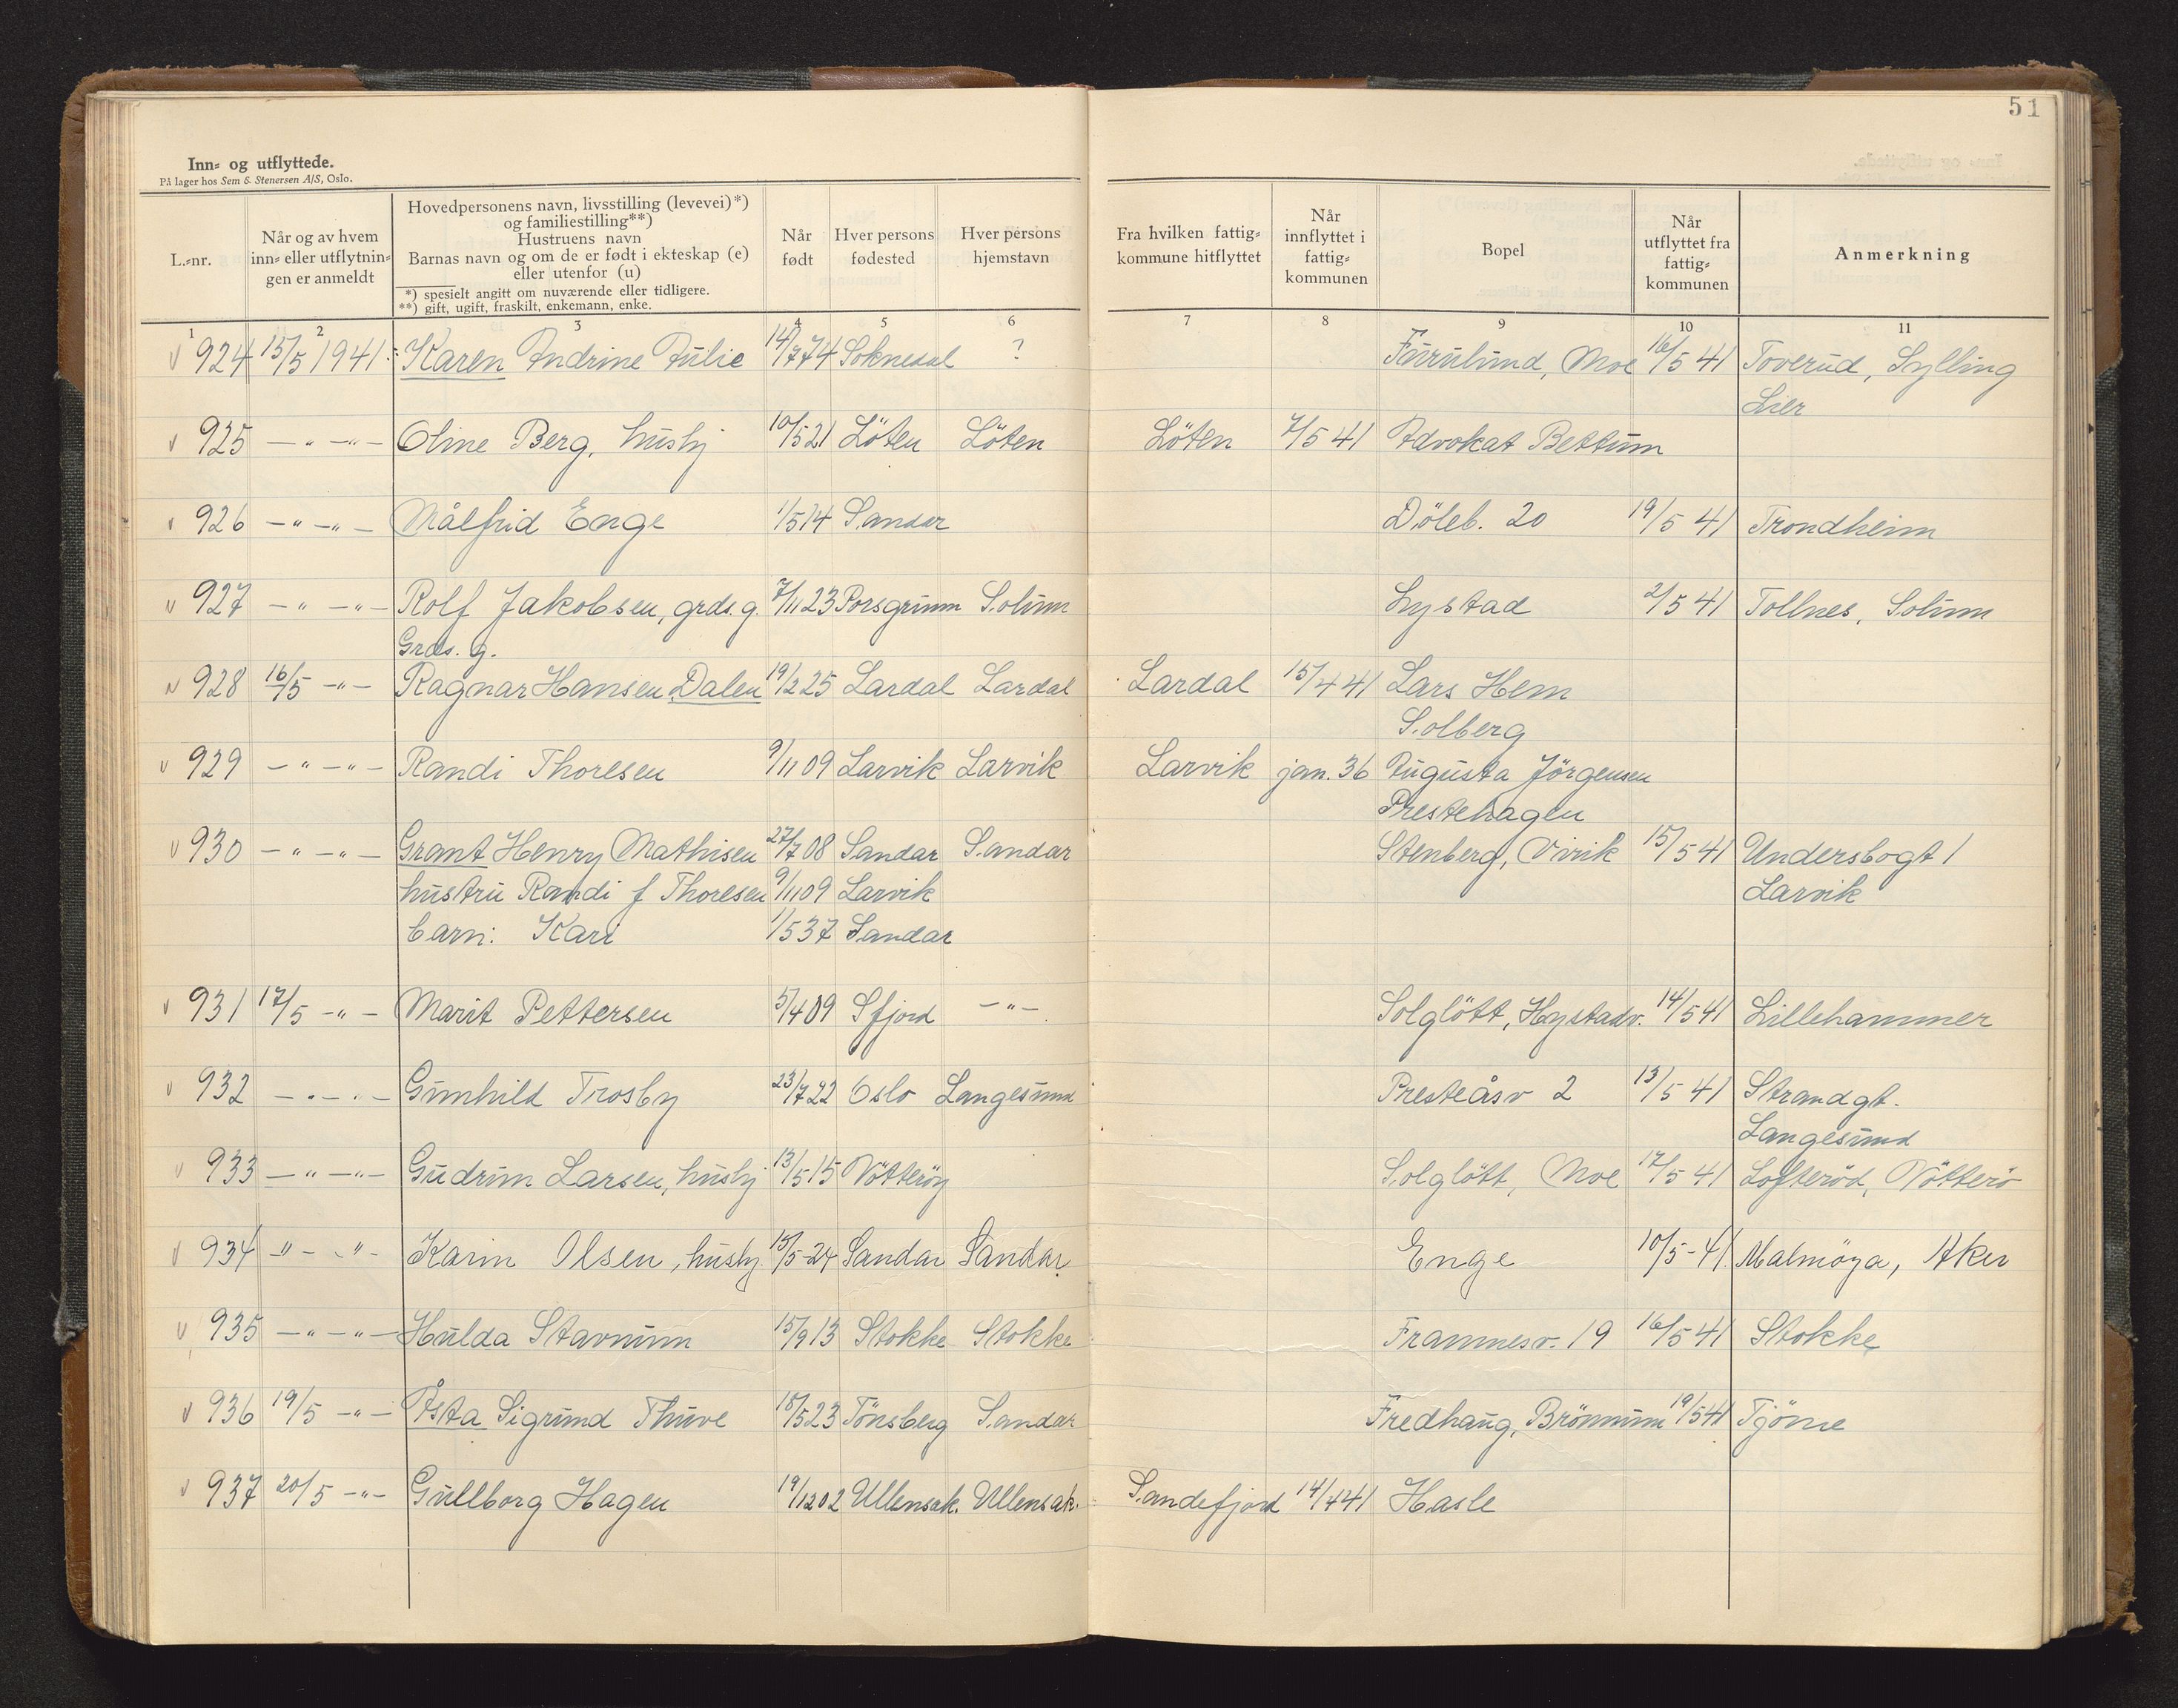 51
Inn- og utflyttede.
På lager hos Sem & Stenersen A/S, Oslo.
L.-nr.
Når og av hvem inn- eller utflytnin- gen er anmeldt
Hovedpersonens navn, livsstilling (levevei)*)
og familiestilling**)
Hustruens navn
Barnas navn og om de er født i ekteskap (e)
eller utenfor (u)
*) spesielt angitt om nuværende eller tidligere.
**) gift, ugift, fraskilt, enkemann, enke.
Når født
Hver persons fødested
Hver persons hjemstavn
Fra hvilken fattig- kommune hitflyttet
Når innflyttet i fattig- kommunen
Bopel
Når utflyttet fra fattig- kommunen
Anmerkning
1 2 3 4 5 6 7 8 9 10 11
924 15/5 1941 Karen Andrine Julie 14/7 74 Soknedal ? Furulund, Moe 16/5 41 Toverud, Sylling
Lier
925 -"- -"- Oline Berg, hushj 10/5 21 Löten Löten Löten 7/5 41 Advokat Bettum
926 -"- -"- Målfrid Enge 1/5 14 Sandar Döleb. 20 19/5 41 Trondheim
927 -"- -"- Rolf Jakobsen, grds. g. 7/11 23 Porsgrunn Solum Lystad 2/5 41 Tollnes, Solum
Grds. g.
928 16/5 -"- Ragnar Hansen Dalen 19/2 25 Lardal Lardal Lardal 15/4 41 Lars Hem
Solberg
929 -"- -"- Randi Thoresen 9/11 09 Larvik Larvik Larvik jan. 36 Augusta Jörgensen
Prestehagen
930 -"- -"- Grant Henry Mathisen 27/7 08 Sandar Sandar Stenberg, Virik 15/5 41 Undersbogt 1
hustru Randi f Thoresen 9/11 09 Larvik Larvik
barn: Kari 1/5 37 Sandar
931 17/5 -"- Marit Pettersen 5/4 09 Sfjord -"- Solglött, Hystadv. 14/5 41 Lillehammer
932 -"- -"- Gunhild Trosby 23/7 22 Oslo Langesund Presteåsv 2 13/5 41 Strandgt.
Langesund
933 -"- -"- Gudrun Larsen, hushj 13/5 15 Nötteröy Solglött, Moe 17/5 41 Lofteröd, Nötterö
934 -"- -"- Karin Olsen, hushj. 15/5-24 Sandar Sandar Enge 10/5-41 Malmöya, Aker
935 -"- -"- Hulda Stavnum 15/9 13 Stokke Stokke Framnesv. 19 16/5 41 Stokke
936 19/5 -"- Åsta Sigrund Thuve 18/5 23 Tönsberg Sandar Fredhaug, Brönnum 19/5 41 Tjöme
937 20/5 -"- Gullborg Hagen 19/12 02 Ullensak. Ullensak. Sandefjord 14/4 41 Hasle